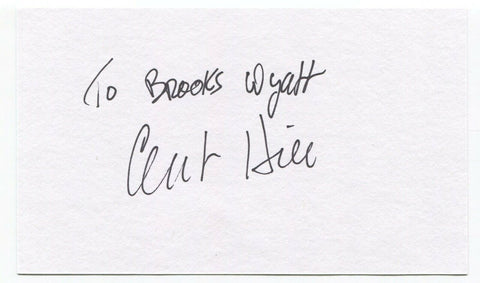 To Brooks Wyatt
Clint Hill